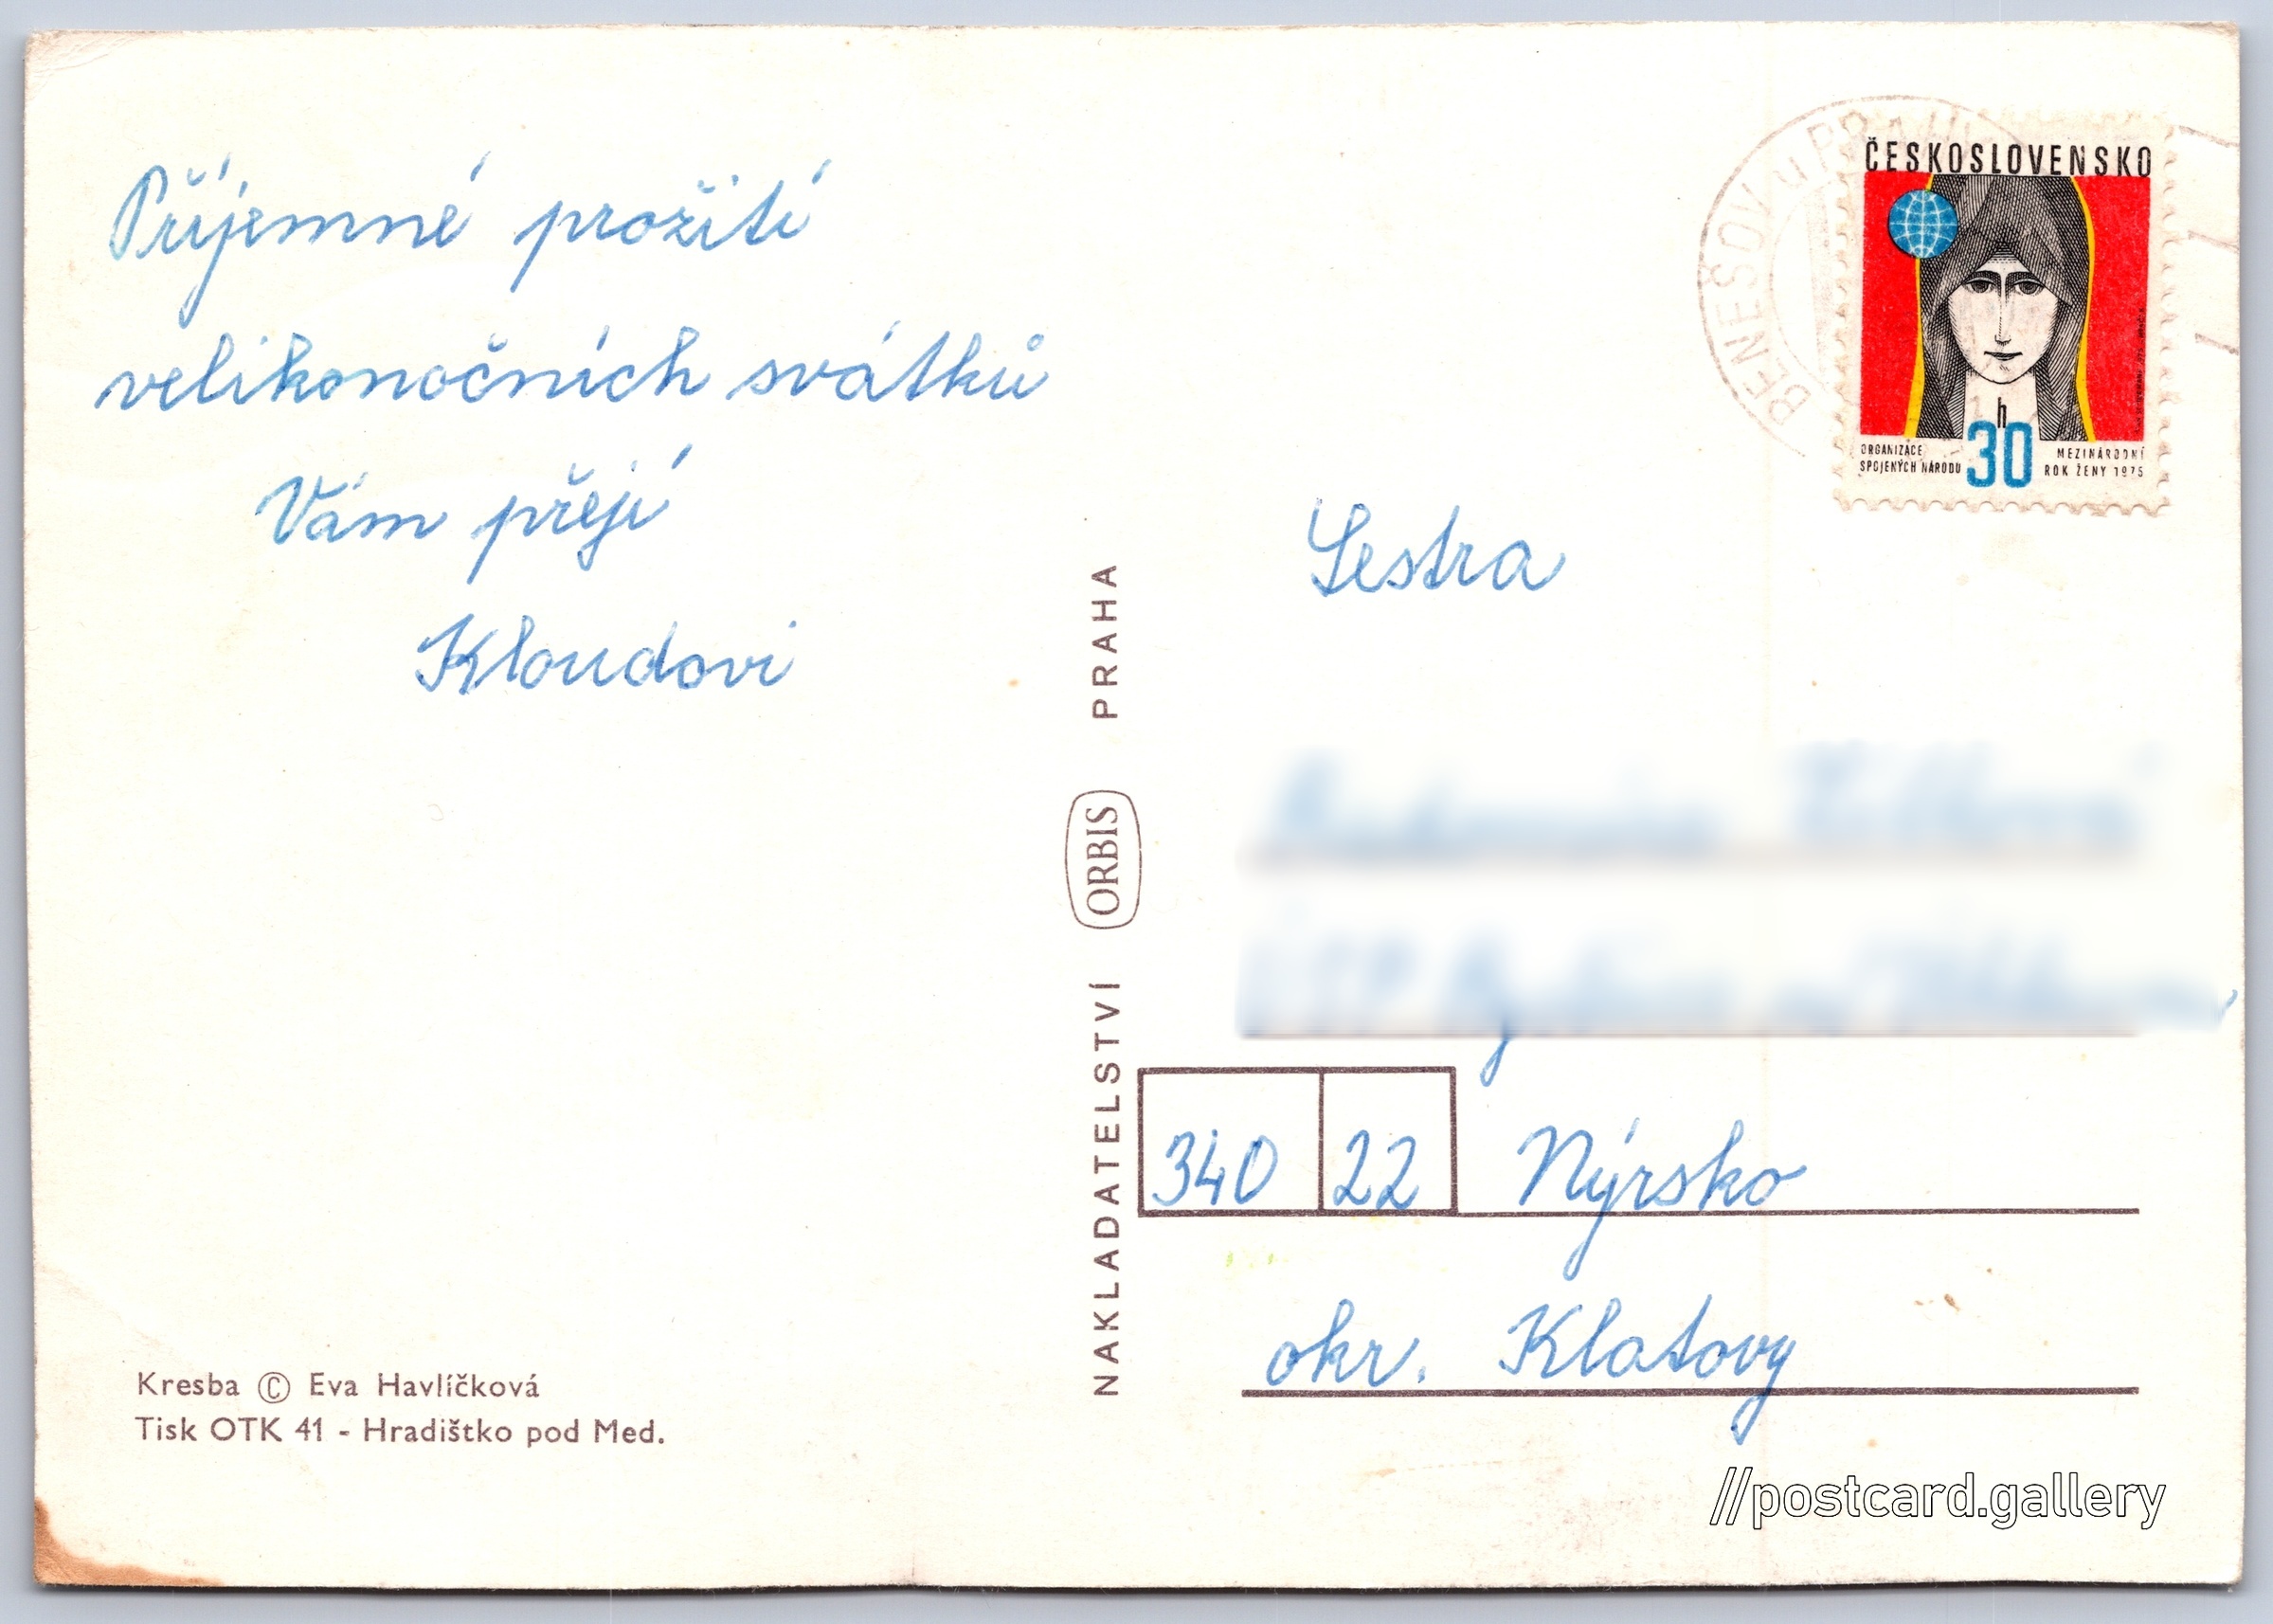 Příjemné prožití
velikonočních svátků
Vám přejí
Kloudovi
Kresba © Eva Havlíčková
Tisk OTK 41 - Hradištko pod Med.
NAKLADATELSTVÍ ORBIS PRAHA
BENEŠOV u PRAHY
ČESKOSLOVENSKO
h
30
ORGANIZACE
SPOJENÝCH NÁRODŮ
MEZINÁRODNÍ
ROK ŽENY 1975
Sestra
340 22 Nýrsko
okr. Klatovy
//postcard.gallery